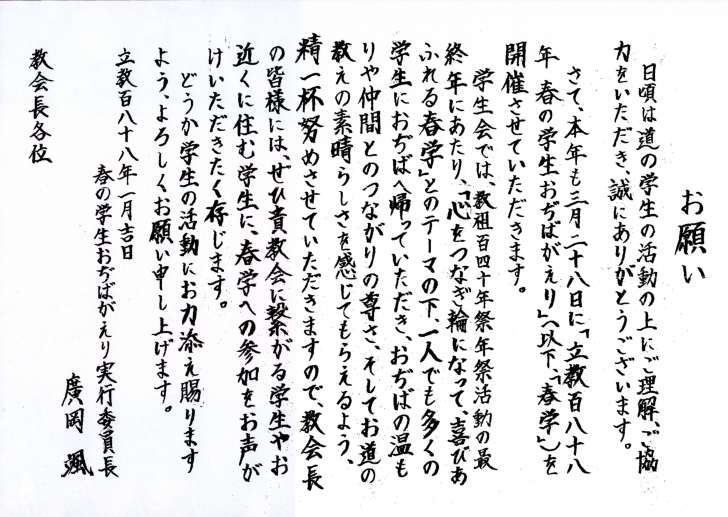 お願い
日頃は道の学生の活動の上にご理解、ご協
力をいただき、誠にありがとうございます。
さて、本年も三月二十八日に「立教百八十八
年 春の学生おぢばがえり」(以下、「春学」)を
開催させていただきます。
学生会では、教祖百四十年祭年祭活動の最
終年にあたり、「心をつなぎ輪になって、喜びあ
ふれる春学」とのテーマの下、一人でも多くの
学生におぢばへ帰っていただき、おぢばの温も
りや仲間とのつながりの尊さ、そしてお道の
教えの素晴らしさを感じてもらえるよう、
精一杯努めさせていただきますので、教会長
の皆様には、ぜひ貴教会に繋がる学生やお
近くに住む学生に、春学への参加をお声が
けいただきたく存じます。
どうか学生の活動にお力添え賜ります
よう、よろしくお願い申し上げます。
立教百八十八年一月吉日
春の学生おぢばがえり実行委員長
廣岡 颯
教会長各位